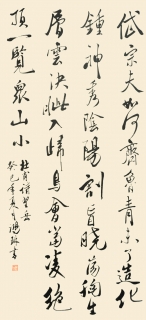 岱宗夫如何齊魯青未了造化
鍾神秀陰陽割昏曉蕩胸生
層雲決眦入歸鳥會當凌絕
頂一覽衆山小
杜甫詩望岳
癸巳年夏月書